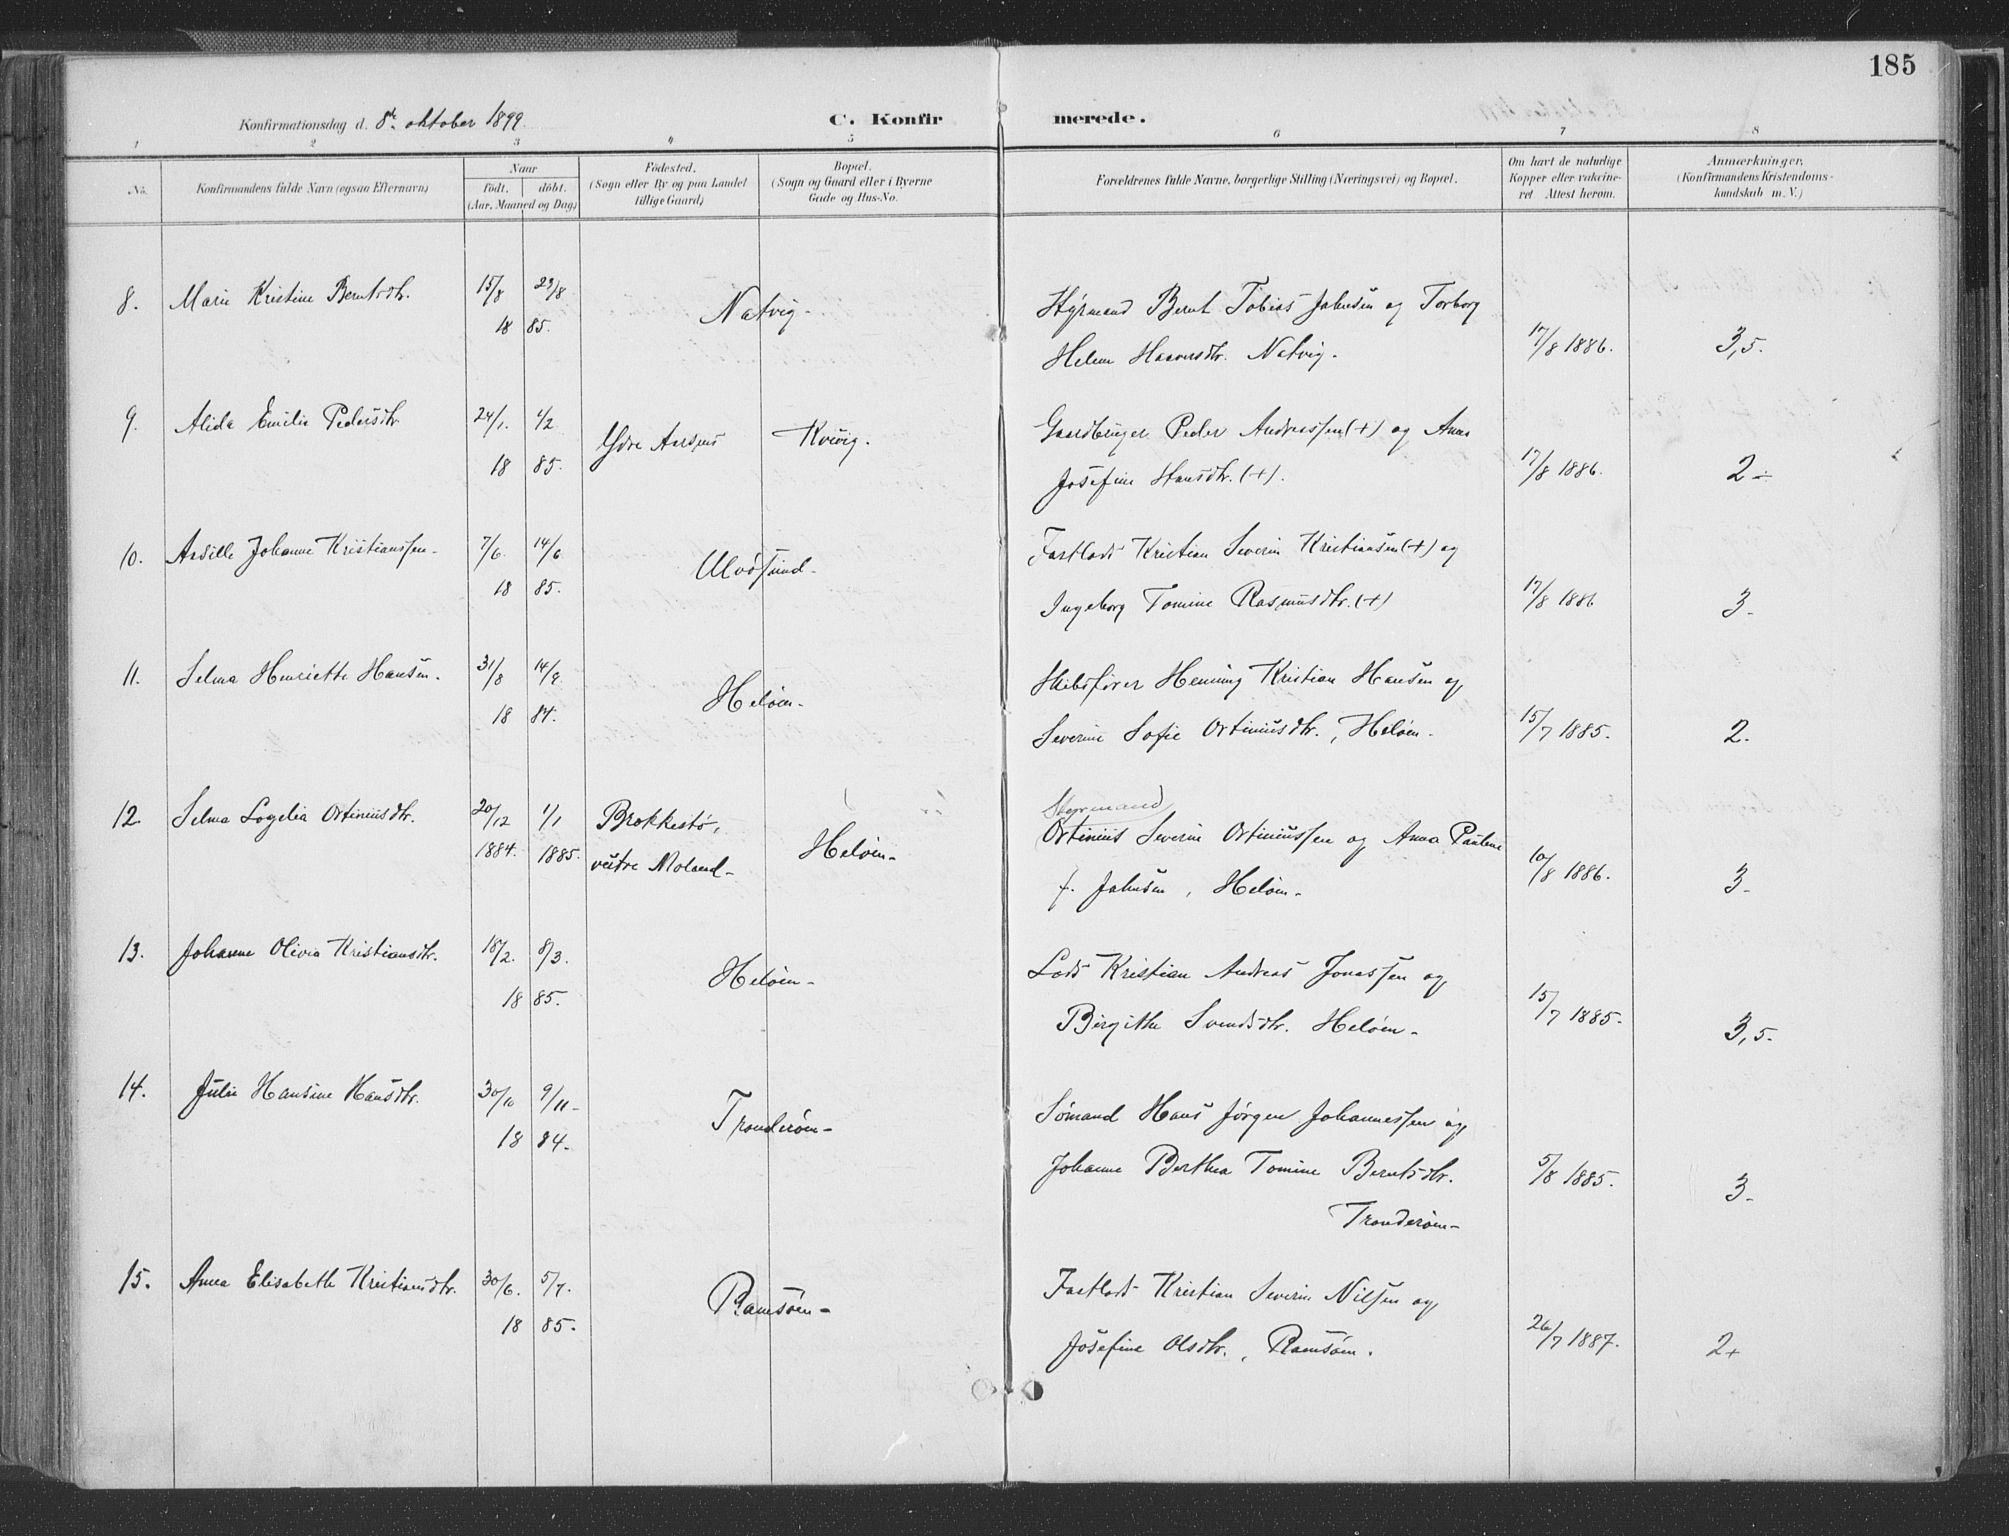 185
Konfirmationsdag d. 8de oktober 1899. C. Konfirmerede.
1 2 3 4 5 6 7 8
No. Konfirmandens fulde Navn (ogsaa Efternavn) Naar født. døbt. (Aar, Maaned og Dag) Fødested. (Sogn eller By og paa Landet tillige Gaard) Bopæl. (Sogn og Gaard eller i Byerne Gade og Hus-No. Forældrenes fulde Navne, borgerlige Stilling (Næringsvei) og Bopæl. Om havt de naturlige Kopper eller vakcineret Attest herom. Anmærkninger. (Konfirmandens Kristendomskundskab m. V.)
8. Marie Kristine Berntsdtr. 15/8 23/8 Natvig. Styrmand Bernt Tobias Johnsen og Torborg
18 85. Helene Haaversdtr. Natvig. 17/8 1886. 3,5.
9. Alida Emilie Pedersdtr 24/1. 1/2 Ydre Aarsnes Kvivig. Gaardbruger Peder Andreassen (+) og Anna
18 85. Josefine Hansdtr. (+). 17/8 1886. 2÷
10. Arville Johanne Kristianssen. 7/6. 14/6 Ulvøsund. Fastlods Kristian Severin Kristiansen (+) og
18 85. Ingeborg Tomine Rasmusdtr. (+) 17/8 1886 3.
11. Selma Henriette Hansen. 31/8 14/9. Heløen. Skibsfører Henning Kristian Hansen og
18 84. Severine Sofie Ortiniusdtr., Heløen. 15/7 1885. 2.
12. Selma Logelia Ortiniusdtr. 20/12 1/1 Brokkestø, Styrmand
Ortinius Severin Ortiniussen og Anna Pauline
1884. 1885. vestre Moland. Heløen. f. Johnsen, Heløen. 10/8 1886. 3.
13. Johanne Olivia Kristiansdtr. 18/2. 8/3. Heløen. Lods Kristian Andreas Jonassen og
18 85. Birgithe Svendsdtr. Heløen. 15/7 1885. 3,5.
14. Julie Hansine Hansdtr. 30/10 9/11. Tronderøen. Sømand Hans Jørgen Johannessen og
18 84. Johanne Berthea Tomine Berntsdtr. 5/8 1885. 3.
Tronderøen.
15. Anna Elisabeth Kristiansdtr. 30/6. 5/7. Ramsøen. Fastlods Kristian Severin Nilsen og
18 85. Josefine Olsdtr., Ramsøen. 26/7 1887. 2+